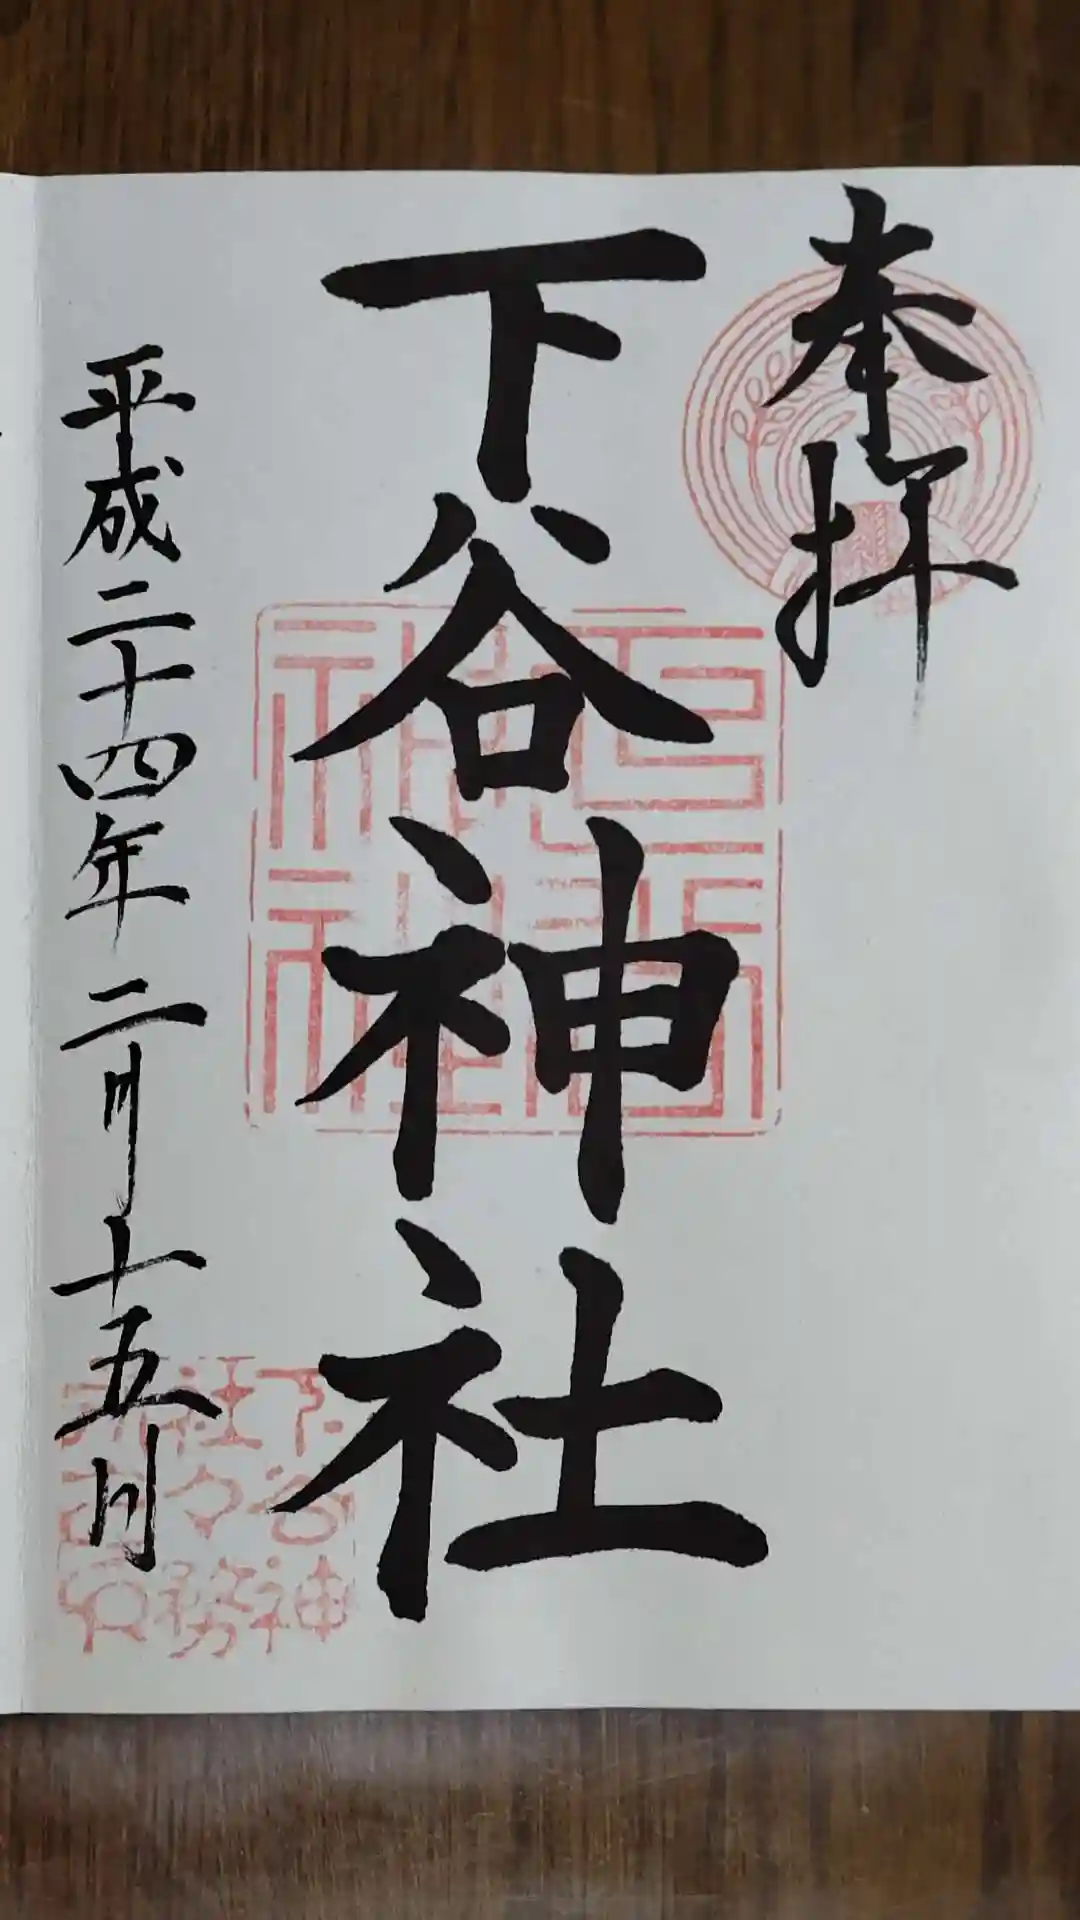 奉拝
下谷神社
平成二十四年二月十五日
下谷神社
下谷神社々務所印